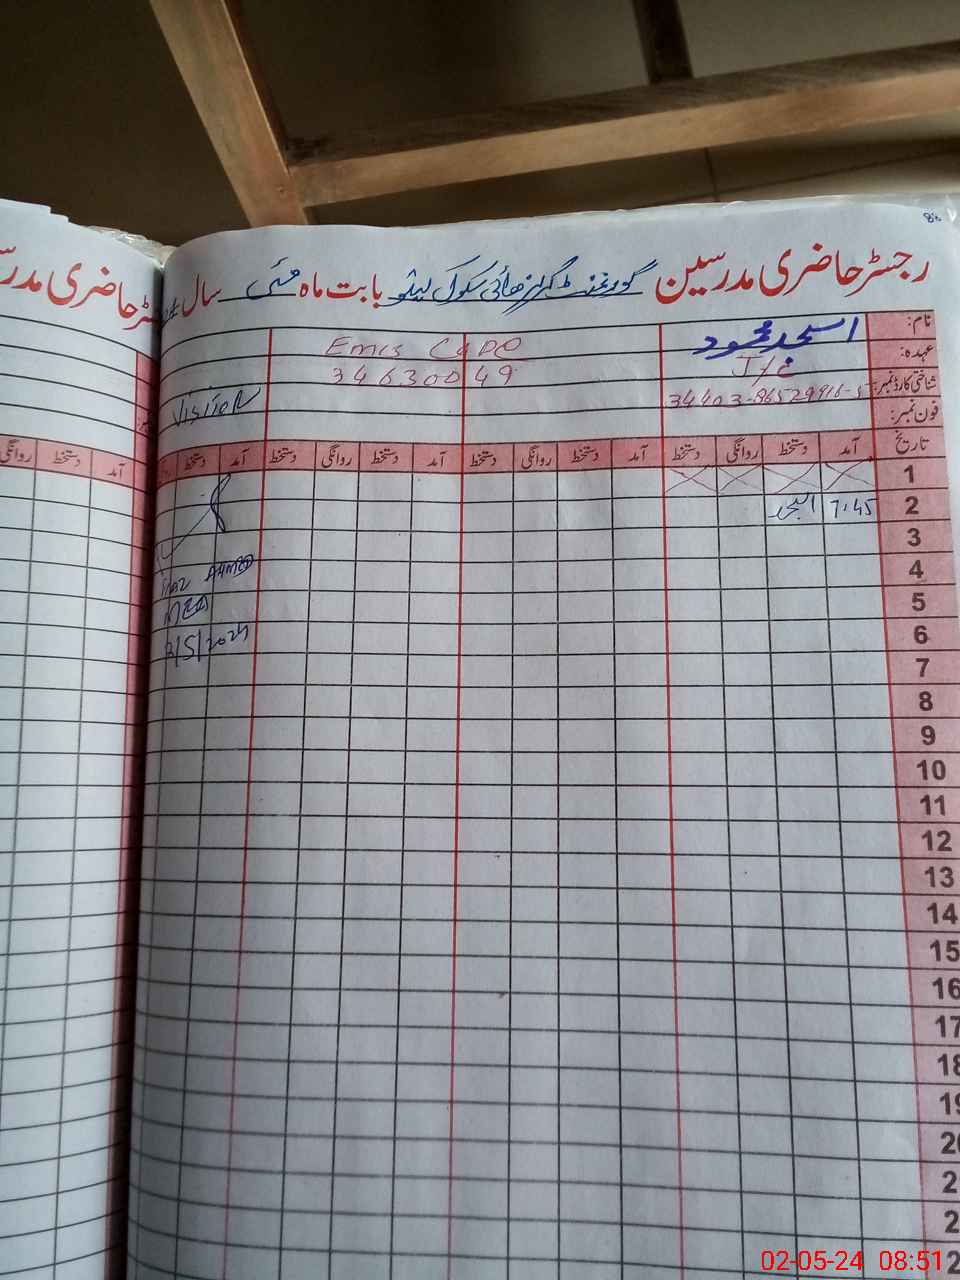 رجسٹر حاضری مدرسین گورنمنٹ گرلز ھائی سکول بابت ماہ مئی سال
نام: اسجد محمود
عہدہ: J/C
شناختی کارڈ نمبر: 34403-8652991
فون نمبر:
Emis Code
34630049
VISITOR
تاریخ آمد دستخط روانگی دستخط آمد دستخط روانگی دستخط آمد دستخط روانگی دستخط آمد دستخط
1
2 7:45 اسجد
3
4
5
6
7
8
9
10
11
12
13
14
15
16
17
18
19
20
Ahmed
MEA
/5/2024
رجسٹر حاضری
آمد دستخط روانگی
02-05-24 08:51